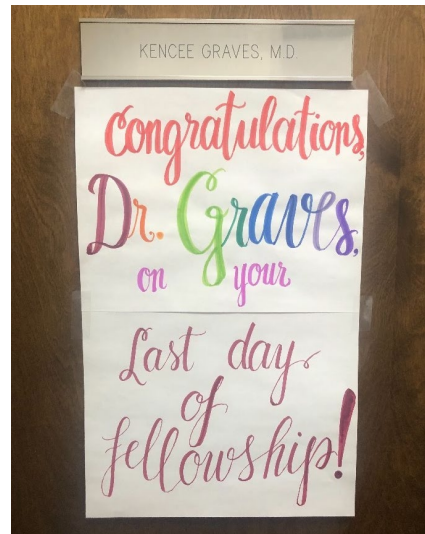 KENCEE GRAVES, M.D.
Congratulations,
Dr. Graves,
on your
Last day
of
fellowship!